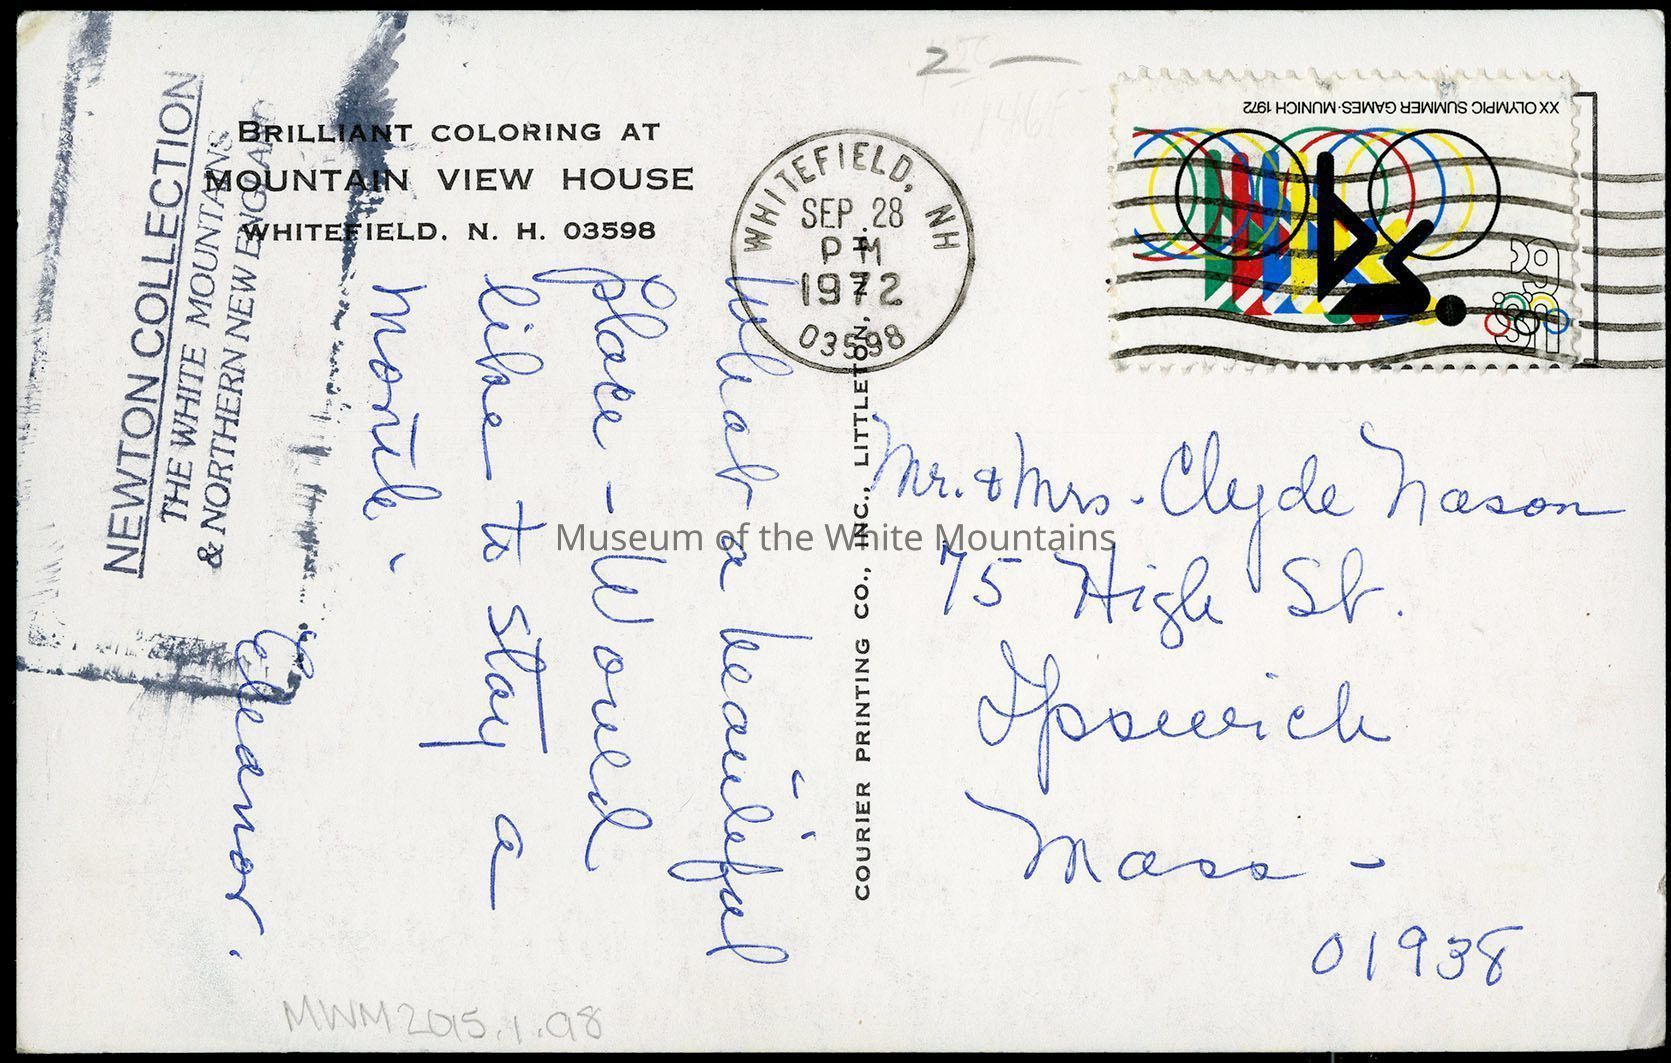 BRILLIANT COLORING AT
MOUNTAIN VIEW HOUSE
WHITEFIELD, N. H. 03598
NEWTON COLLECTION
THE WHITE MOUNTAINS
& NORTHERN NEW ENGLAND
What a beautiful
place - Would
like to stay a
month.
Eleanor.
COURIER PRINTING CO., INC., LITTLETON, N. H.
2 —
WHITEFIELD, NH
SEP. 28
PM
1972
03598
XX OLYMPIC SUMMER GAMES·MUNICH 1972
US
8c
Mr. & Mrs. Clyde Nason
75 High St.
Ipswich
Mass -
01938
Museum of the White Mountains
MWM2015.1.98